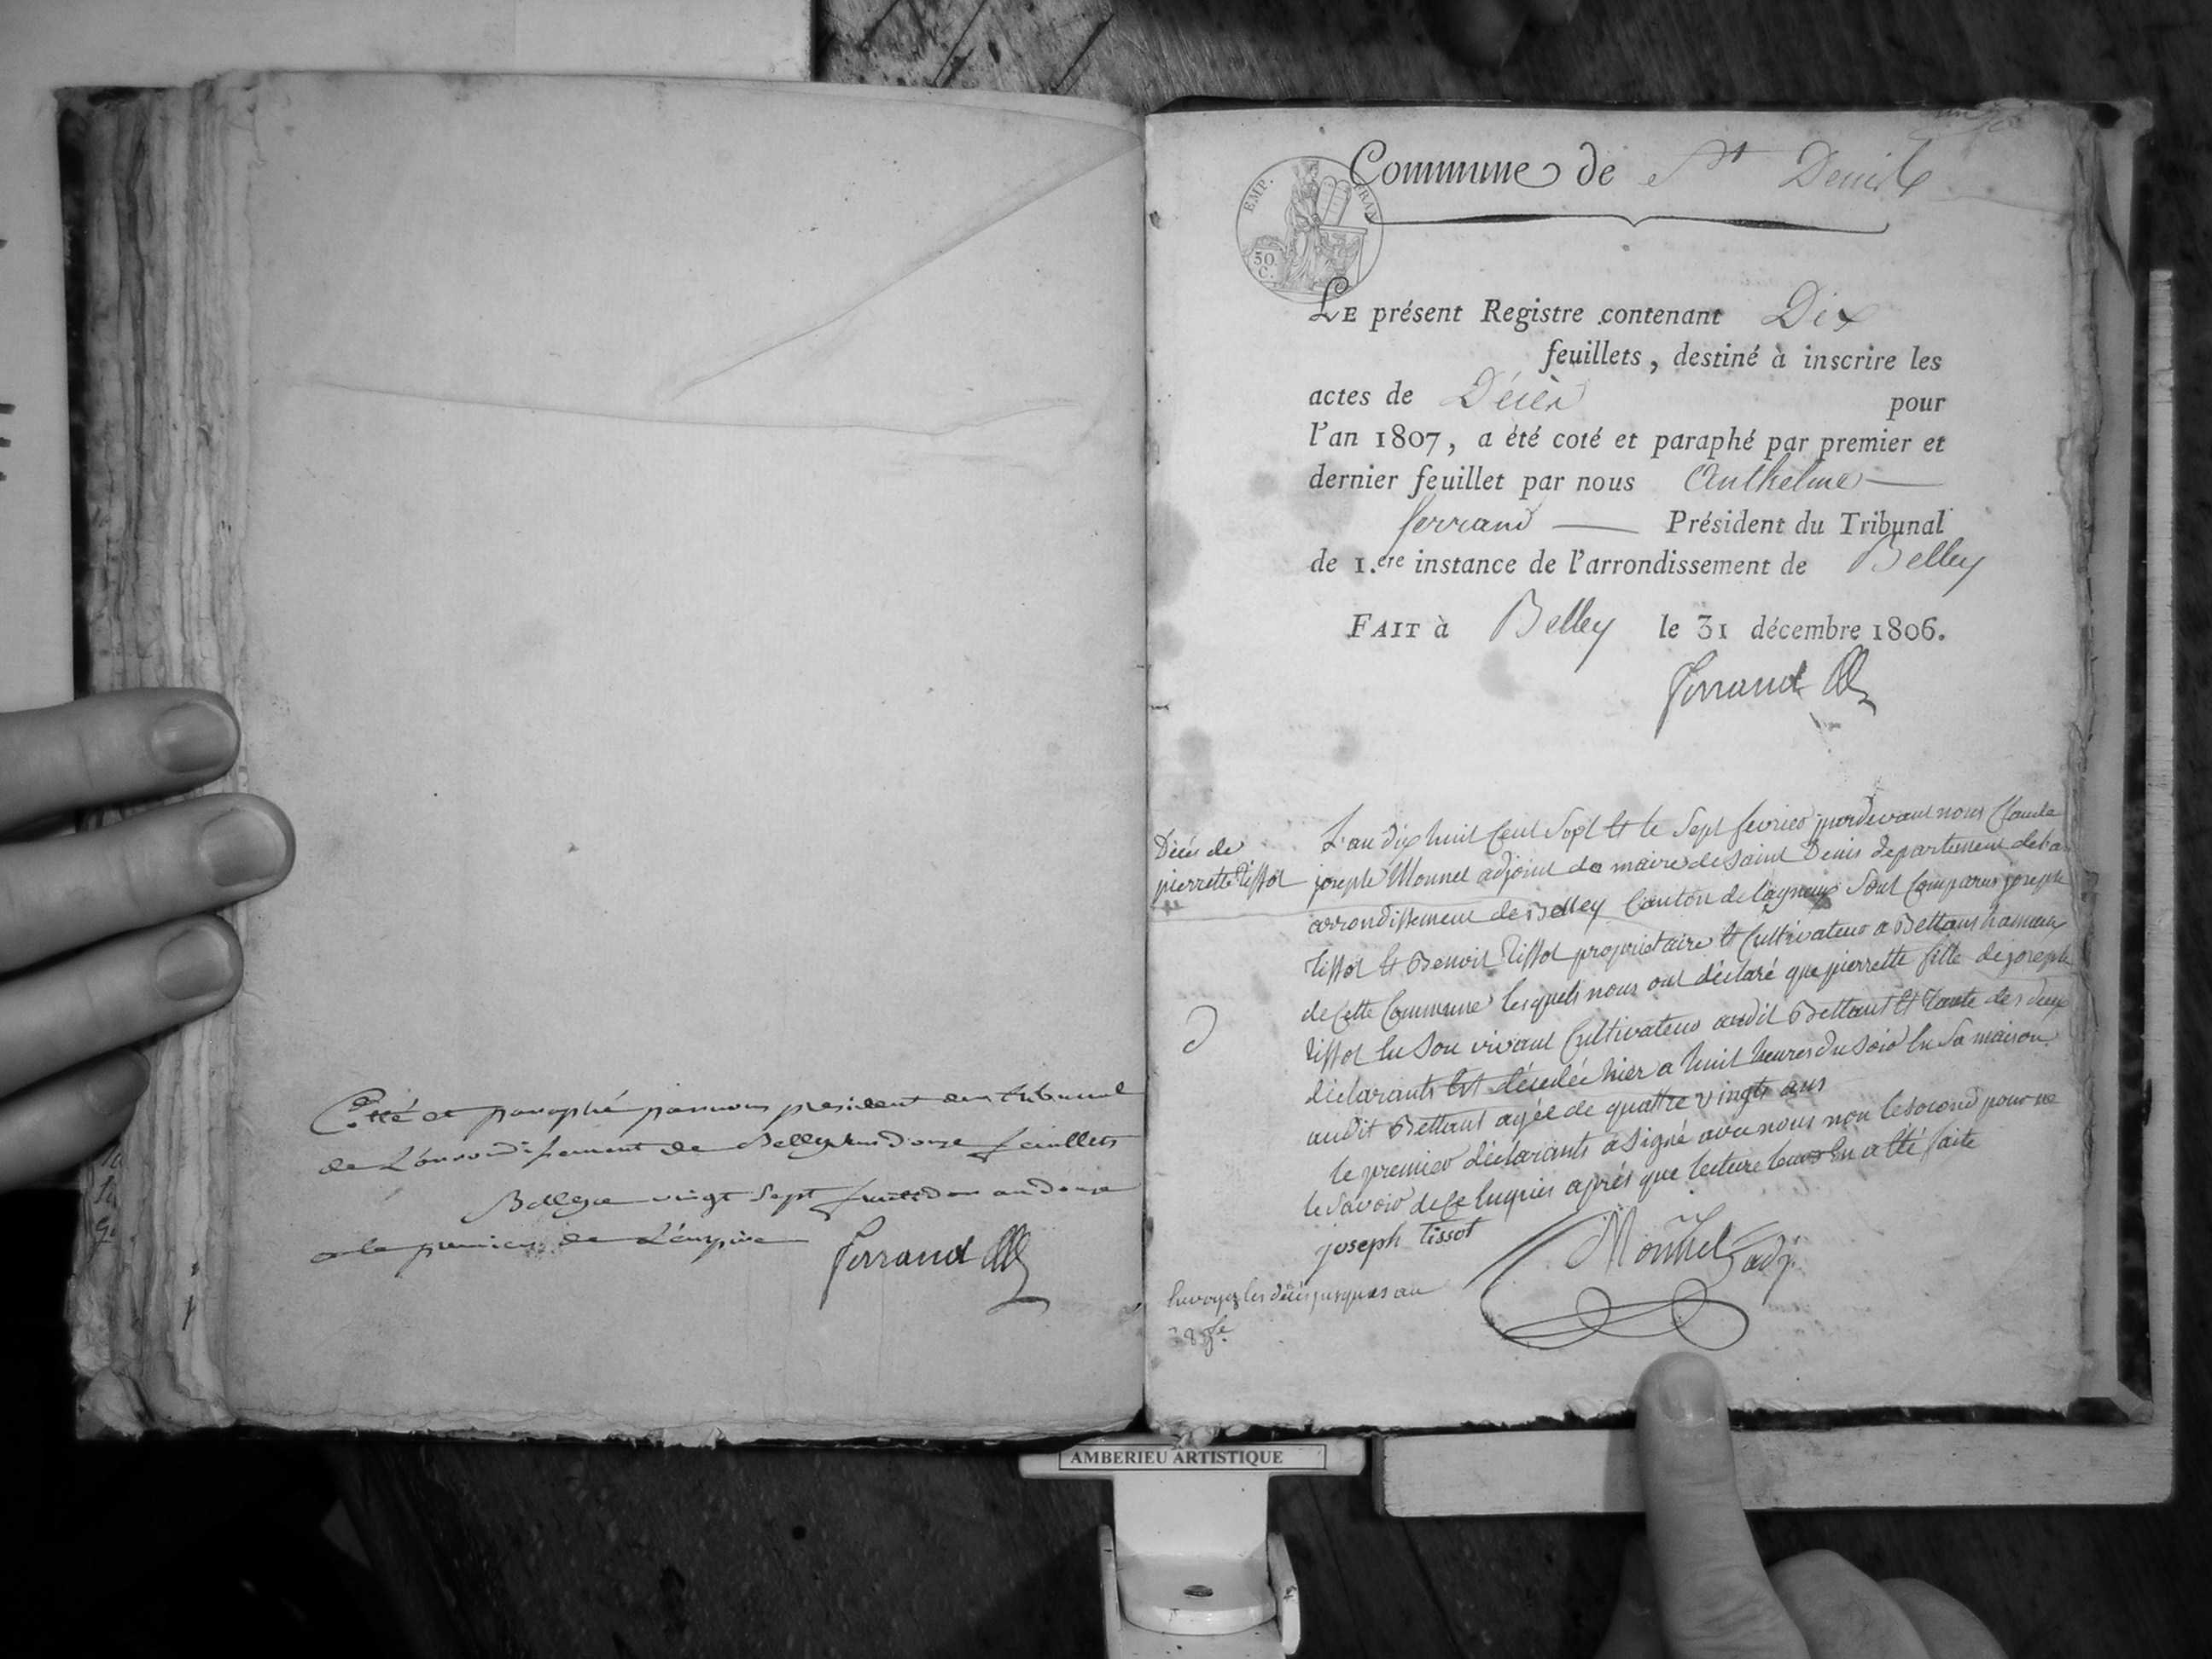 Cotté et paraphé par nous president du tribunal
de L'arrondissement de Belley douze feuillets
Belley ce vingt Sept fructidor an douze
et le premier de L'empire Ferrand
Commune de St Denis
EMP. FRAN
50.
C.
LE présent Registre contenant Dix
feuillets, destiné à inscrire les
actes de Décès pour
l'an 1807, a été coté et paraphé par premier et
dernier feuillet par nous Anthelme
ferrand Président du Tribunal
de 1.ere instance de l'arrondissement de Belley
FAIT à Belley le 31 décembre 1806.
Ferrand
Décés de
pierrette tissot
L'an dix huit Cent Sept et le Sept fevrier pardevant nous Claude
joseph Monnet adjoint du maire de Saint Denis departement de l'ain
arrondissement de Belley Canton de lagnieux Sont Comparus joseph
tissot et Benoit tissot propriétaire et Cultivateur a Bettans hameau
de Cette Commune lesquels nous ont déclaré que pierrette fille de joseph
tissot en Son vivant Cultivateur audit Bettant et tante des deux
déclarants Est décedée hier a huit heures du Soir En Sa maison
audit Bettant agée de quattre vingts ans
le premier déclarants a Signé avec nous non le Second pour ne
le Savoir de Ce Enquis aprés que lecture leur En a été faite
joseph tissot
Monnet adj.
Envoyez les décés jusques au
AMBERIEU ARTISTIQUE